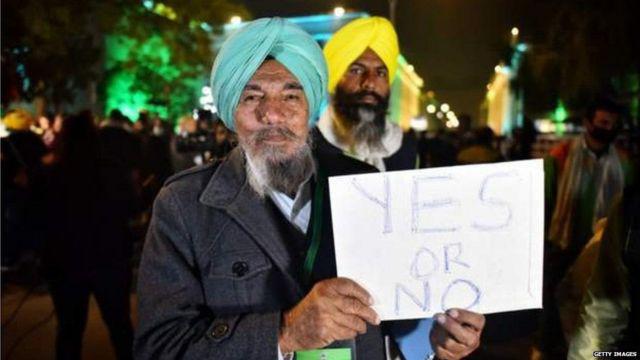 YES
OR
NO
GETTY IMAGES